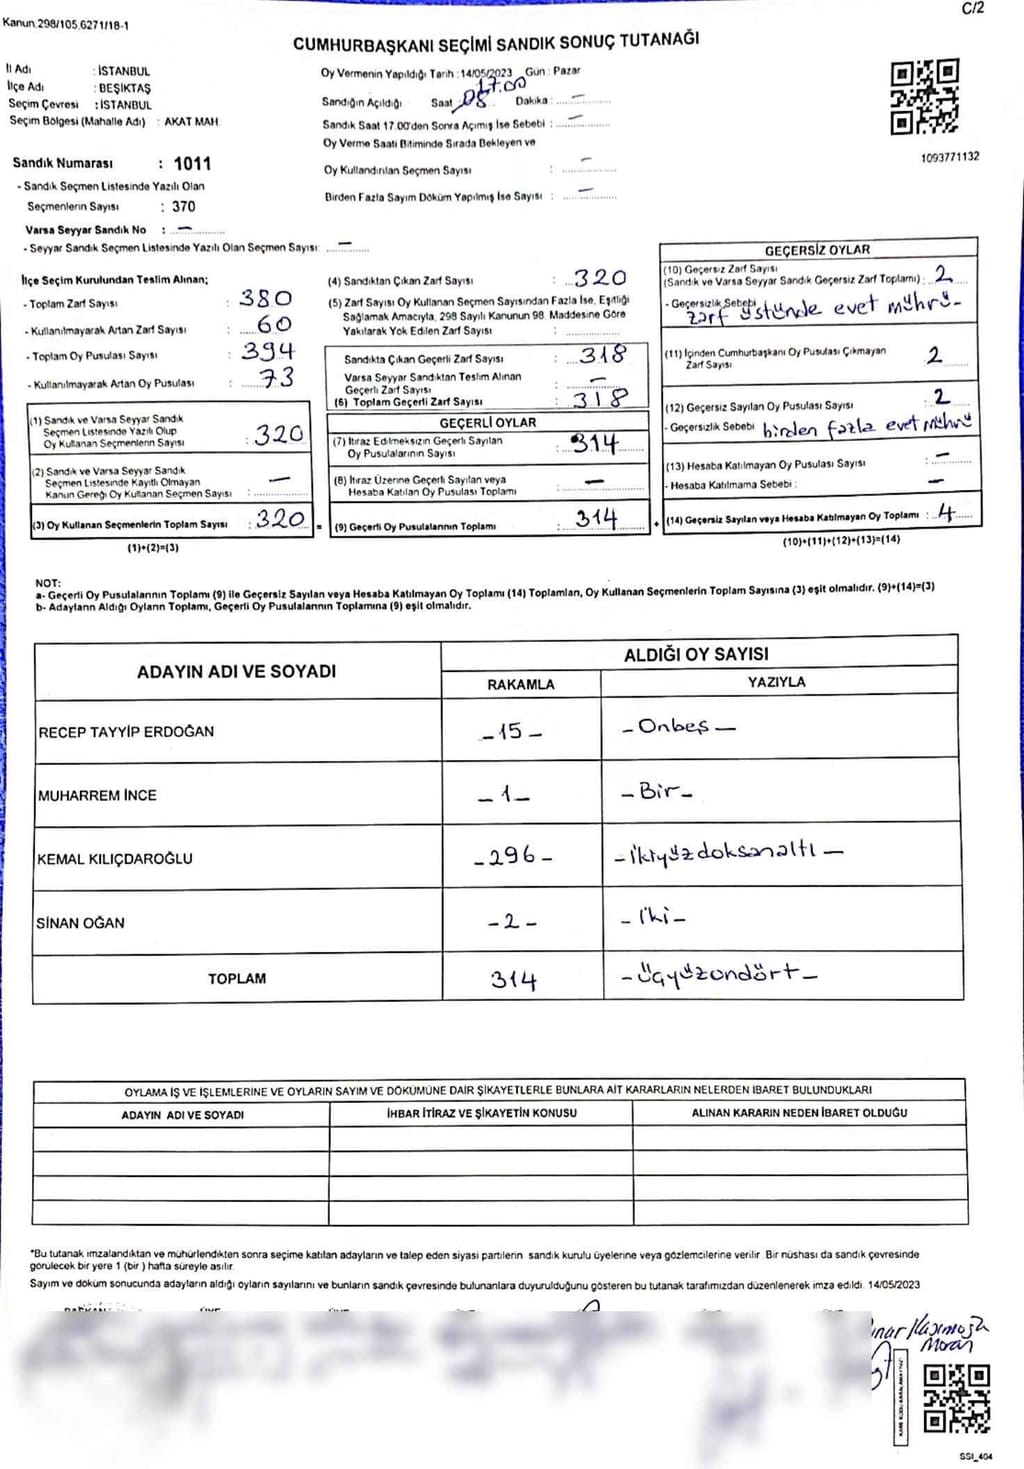 C/2
Kanun.298/105,6271/18-1
CUMHURBAŞKANI SEÇİMİ SANDIK SONUÇ TUTANAĞI
İl Adı : İSTANBUL
İlçe Adı : BEŞİKTAŞ
Seçim Çevresi : İSTANBUL
Seçim Bölgesi (Mahalle Adı) : AKAT MAH
Sandık Numarası : 1011
- Sandık Seçmen Listesinde Yazılı Olan
Seçmenlerin Sayısı : 370
Varsa Seyyar Sandık No : —
- Seyyar Sandık Seçmen Listesinde Yazılı Olan Seçmen Sayısı: —
Oy Vermenin Yapıldığı Tarih : 14/05/2023 Gün : Pazar
17.00
Sandığın Açıldığı Saat : 08 Dakika : —
Sandık Saat 17.00'den Sonra Açımış İse Sebebi : —
Oy Verme Saati Bitiminde Sırada Bekleyen ve
Oy Kullandırılan Seçmen Sayısı : —
Birden Fazla Sayım Döküm Yapılmış İse Sayısı : —
1093771132
İlçe Seçim Kurulundan Teslim Alınan;
- Toplam Zarf Sayısı : 380
- Kullanılmayarak Artan Zarf Sayısı : 60
- Toplam Oy Pusulası Sayısı : 394
- Kullanılmayarak Artan Oy Pusulası : 73
(1) Sandık ve Varsa Seyyar Sandık
Seçmen Listesinde Yazılı Olup
Oy Kullanan Seçmenlerin Sayısı : 320
(2) Sandık ve Varsa Seyyar Sandık
Seçmen Listesinde Kayıtlı Olmayan
Kanun Gereği Oy Kullanan Seçmen Sayısı : —
(3) Oy Kullanan Seçmenlerin Toplam Sayısı : 320 =
(1)+(2)=(3)
(4) Sandıktan Çıkan Zarf Sayısı : 320
(5) Zarf Sayısı Oy Kullanan Seçmen Sayısından Fazla İse, Eşitliği
Sağlamak Amacıyla, 298 Sayılı Kanunun 98. Maddesine Göre
Yakılarak Yok Edilen Zarf Sayısı :
Sandıkta Çıkan Geçerli Zarf Sayısı : 318
Varsa Seyyar Sandıktan Teslim Alınan
Geçerli Zarf Sayısı : —
(6) Toplam Geçerli Zarf Sayısı : 318
GEÇERLİ OYLAR
(7) İtiraz Edilmeksizin Geçerli Sayılan
Oy Pusulalarının Sayısı : 314
(8) İtiraz Üzerine Geçerli Sayılan veya
Hesaba Katılan Oy Pusulası Toplamı : —
(9) Geçerli Oy Pusulalarının Toplamı : 314 +
GEÇERSİZ OYLAR
(10) Geçersiz Zarf Sayısı
(Sandık ve Varsa Seyyar Sandık Geçersiz Zarf Toplamı) : 2
- Geçersizlik Sebebi : zarf üstünde evet mührü-
(11) İçinden Cumhurbaşkanı Oy Pusulası Çıkmayan
Zarf Sayısı : 2
(12) Geçersiz Sayılan Oy Pusulası Sayısı : 2
- Geçersizlik Sebebi birden fazla evet mührü
(13) Hesaba Katılmayan Oy Pusulası Sayısı : —
- Hesaba Katılmama Sebebi : —
(14) Geçersiz Sayılan veya Hesaba Katılmayan Oy Toplamı : 4
(10)+(11)+(12)+(13)=(14)
NOT:
a- Geçerli Oy Pusulalarının Toplamı (9) ile Geçersiz Sayılan veya Hesaba Katılmayan Oy Toplamı (14) Toplamları, Oy Kullanan Seçmenlerin Toplam Sayısına (3) eşit olmalıdır. (9)+(14)=(3)
b- Adayların Aldığı Oyların Toplamı, Geçerli Oy Pusulalarının Toplamına (9) eşit olmalıdır.
ADAYIN ADI VE SOYADI
ALDIĞI OY SAYISI
RAKAMLA YAZIYLA
RECEP TAYYİP ERDOĞAN -15- -Onbeş-
MUHARREM İNCE -1- -Bir-
KEMAL KILIÇDAROĞLU -296- -ikiyüzdoksanaltı-
SİNAN OĞAN -2- -İki-
TOPLAM 314 -üçyüzondört-
OYLAMA İŞ VE İŞLEMLERİNE VE OYLARIN SAYIM VE DÖKÜMÜNE DAİR ŞİKAYETLERLE BUNLARA AİT KARARLARIN NELERDEN İBARET BULUNDUKLARI
ADAYIN ADI VE SOYADI İHBAR İTİRAZ VE ŞİKAYETİN KONUSU ALINAN KARARIN NEDEN İBARET OLDUĞU
*Bu tutanak imzalandıktan ve mühürlendikten sonra seçime katılan adayların ve talep eden siyasi partilerin sandık kurulu üyelerine veya gözlemcilerine verilir. Bir nüshası da sandık çevresinde
görülecek bir yere 1 (bir) hafta süreyle asılır.
Sayım ve döküm sonucunda adayların aldığı oyların sayılarını ve bunların sandık çevresinde bulunanlara duyurulduğunu gösteren bu tutanak tarafımızdan düzenlenerek imza edildi. 14/05/2023
SSI_404